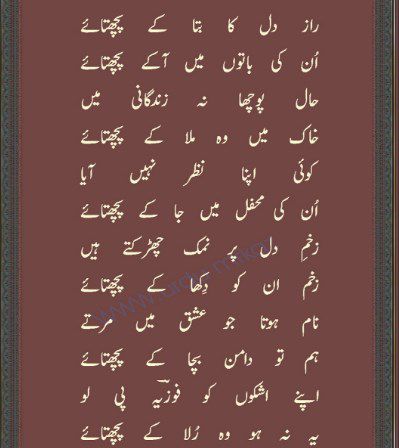 راز دل کا بتا کے پچھتائے
اُن کی باتوں میں آکے پچھتائے
حال پوچھا نہ زندگانی میں
خاک میں وہ ملا کے پچھتائے
کوئی اپنا نظر نہیں آیا
اُن کی محفل میں جا کے پچھتائے
زخمِ دل پر نمک چھڑکتے ہیں
زخم ان کو دِکھا کے پچھتائے
نام ہوتا جو عشق میں مرتے
ہم تو دامن بچا کے پچھتائے
اپنے اشکوں کو فوزیہؔ پی لو
یہ نہ ہو وہ رُلا کے پچھتائے